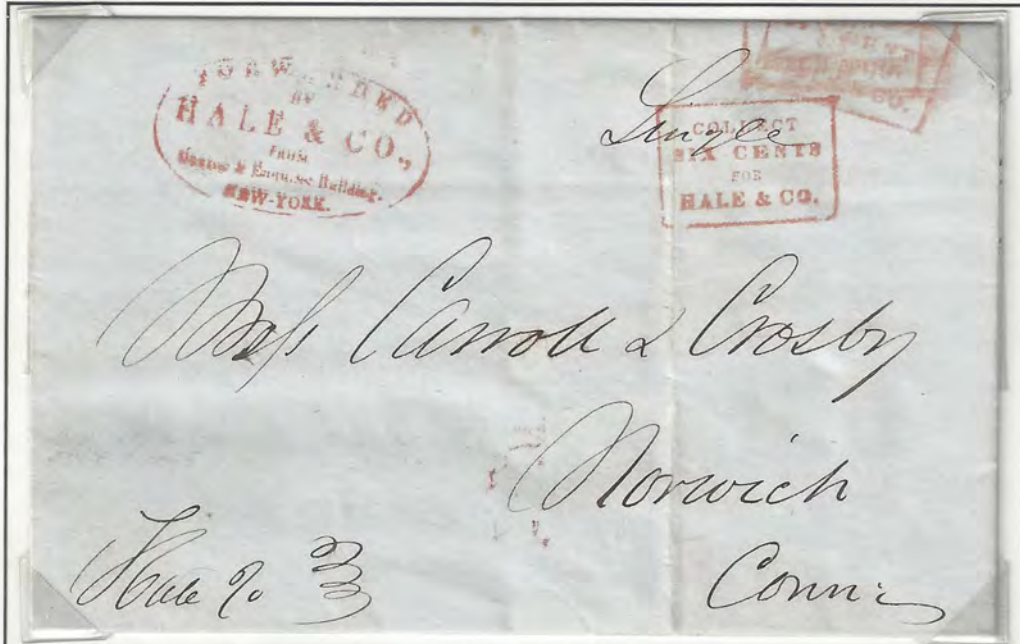 FORWARDED
BY
HALE & CO.,
FROM
Courier & Enquirer Building.
NEW-YORK.
Single
COLLECT
SIX CENTS
FOR
HALE & CO.
CO.
Mess Carroll & Crosby
Norwich
Conn
Hale & Co